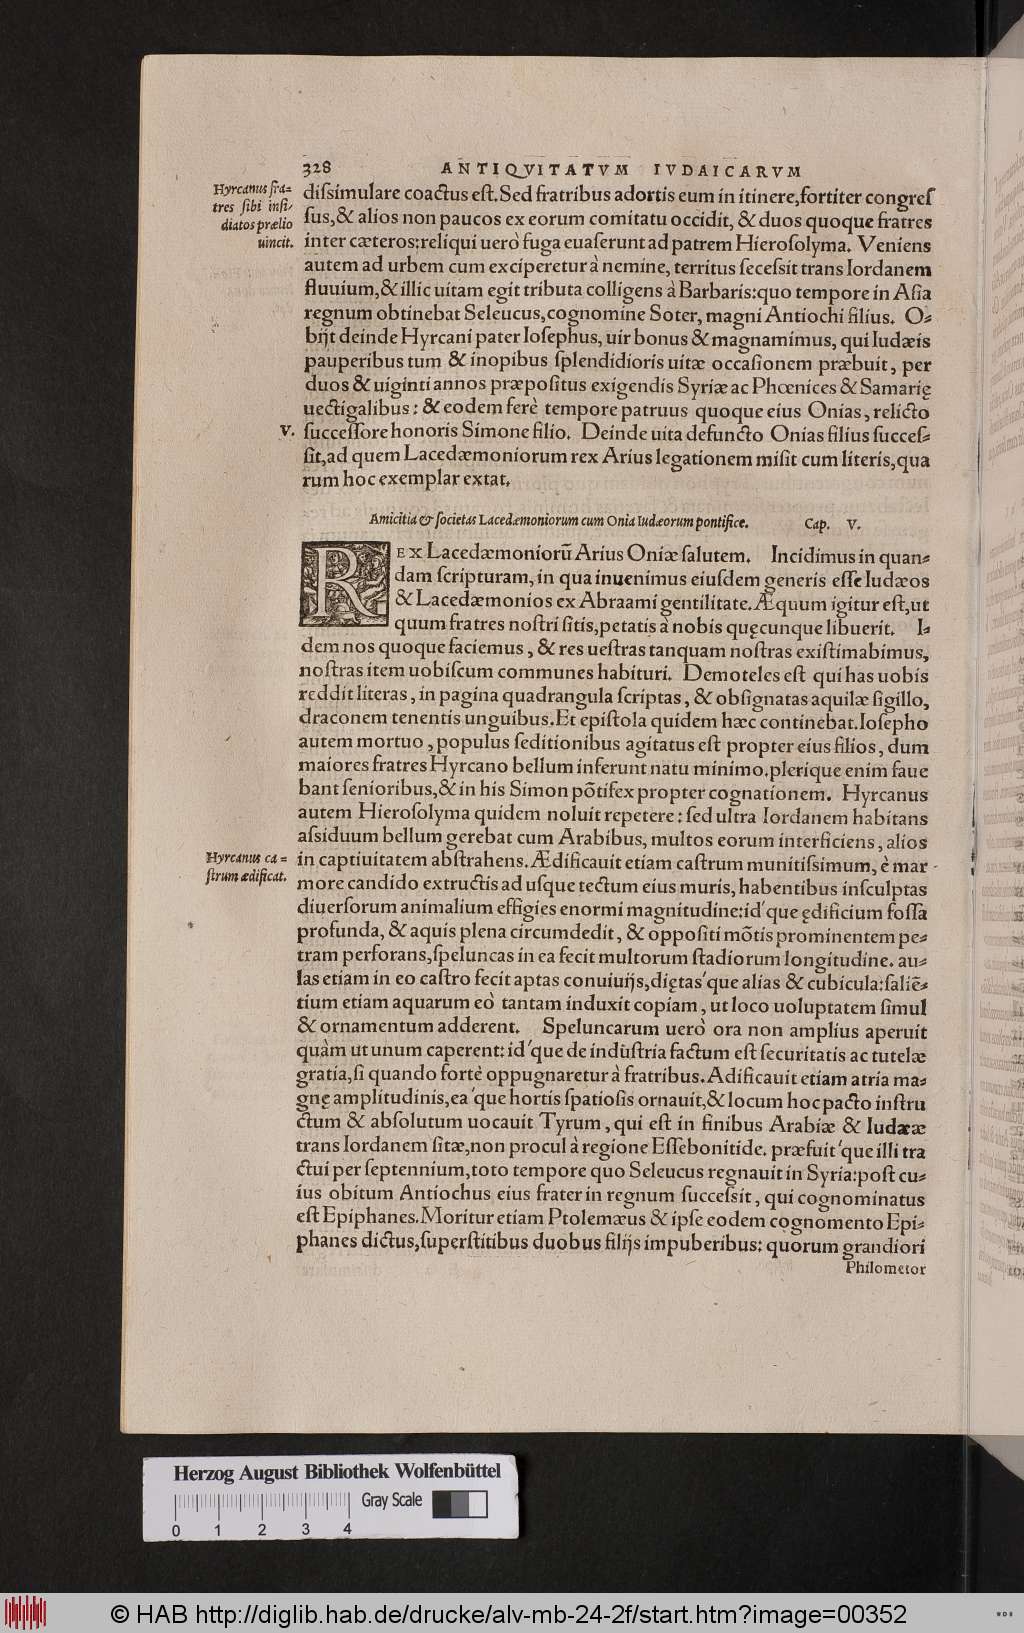 328 ANTIQVITATVM IVDAICARVM
Hyrcanus fra=
tres ſibi inſi-
diatos prælio
uincit.
diſsimulare coactus eſt. Sed fratribus adortis eum in itinere, fortiter congreſ
ſus, & alios non paucos ex eorum comitatu occidit, & duos quoque fratres
inter cæteros: reliqui uerò fuga euaſerunt ad patrem Hieroſolyma. Veniens
autem ad urbem cum exciperetur à nemine, territus ſeceſsit trans Iordanem
fluuium, & illic uitam egit tributa colligens à Barbaris: quo tempore in Aſia
regnum obtinebat Seleucus, cognomine Soter, magni Antiochi filius. O=
bijt deinde Hyrcani pater Ioſephus, uir bonus & magnamimus, qui Iudæis
pauperibus tum & inopibus ſplendidioris uitæ occaſionem præbuit, per
duos & uiginti annos præpoſitus exigendis Syriæ ac Phœnices & Samarię
uectigalibus: & eodem ferè tempore patruus quoque eius Onias, relicto
V. ſucceſſore honoris Simone filio. Deinde uita defuncto Onias filius ſucceſ=
ſit, ad quem Lacedæmoniorum rex Arius legationem miſit cum literis, qua
rum hoc exemplar extat.
Amicitia & ſocietas Lacedæmoniorum cum Onia Iudæorum pontifice. Cap. V.
REX Lacedæmoniorũ Arius Oniæ ſalutem. Incidimus in quan=
dam ſcripturam, in qua inuenimus eiuſdem generis eſſe Iudæos
& Lacedæmonios ex Abraami gentilitate. Æquum igitur eſt, ut
quum fratres noſtri ſitis, petatis à nobis quęcunque libuerit. I=
dem nos quoque faciemus, & res ueſtras tanquam noſtras exiſtimabimus,
noſtras item uobiſcum communes habituri. Demoteles eſt qui has uobis
reddit literas, in pagina quadrangula ſcriptas, & obſignatas aquilæ ſigillo,
draconem tenentis unguibus. Et epiſtola quidem hæc continebat. Ioſepho
autem mortuo, populus ſeditionibus agitatus eſt propter eius filios, dum
maiores fratres Hyrcano bellum inferunt natu minimo. plerique enim faue
bant ſenioribus, & in his Simon põtifex propter cognationem. Hyrcanus
autem Hieroſolyma quidem noluit repetere: ſed ultra Iordanem habitans
aſsiduum bellum gerebat cum Arabibus, multos eorum interficiens, alios
Hyrcanus ca=
ſtrum ædificat.
in captiuitatem abſtrahens. Ædificauit etiam caſtrum munitiſsimum, è mar-
more candido extructis ad uſque tectum eius muris, habentibus inſculptas
diuerſorum animalium effigies enormi magnitudine: id'que ędificium foſſa
profunda, & aquis plena circumdedit, & oppoſiti mõtis prominentem pe=
tram perforans, ſpeluncas in ea fecit multorum ſtadiorum longitudine. au=
las etiam in eo caſtro fecit aptas conuiuijs, diętas'que alias & cubicula: ſaliẽ=
tium etiam aquarum eò tantam induxit copiam, ut loco uoluptatem ſimul
& ornamentum adderent. Speluncarum uerò ora non amplius aperuit
quàm ut unum caperent: id'que de induſtria factum eſt ſecuritatis ac tutelæ
gratia, ſi quando fortè oppugnaretur à fratribus. Adificauit etiam atria ma=
gnę amplitudinis, ea'que hortis ſpatioſis ornauit, & locum hoc pacto inſtru
ctum & abſolutum uocauit Tyrum, qui eſt in finibus Arabiæ & Iudææ
trans Iordanem ſitæ, non procul à regione Eſſebonitide. præfuit'que illi tra
ctui per ſeptennium, toto tempore quo Seleucus regnauit in Syria: poſt cu=
ius obitum Antiochus eius frater in regnum ſucceſsit, qui cognominatus
eſt Epiphanes. Moritur etiam Ptolemæus & ipſe eodem cognomento Epi=
phanes dictus, ſuperſtitibus duobus filijs impuberibus: quorum grandiori
Philometor
Herzog August Bibliothek Wolfenbüttel
Gray Scale
0 1 2 3 4
© HAB http://diglib.hab.de/drucke/alv-mb-24-2f/start.htm?image=00352